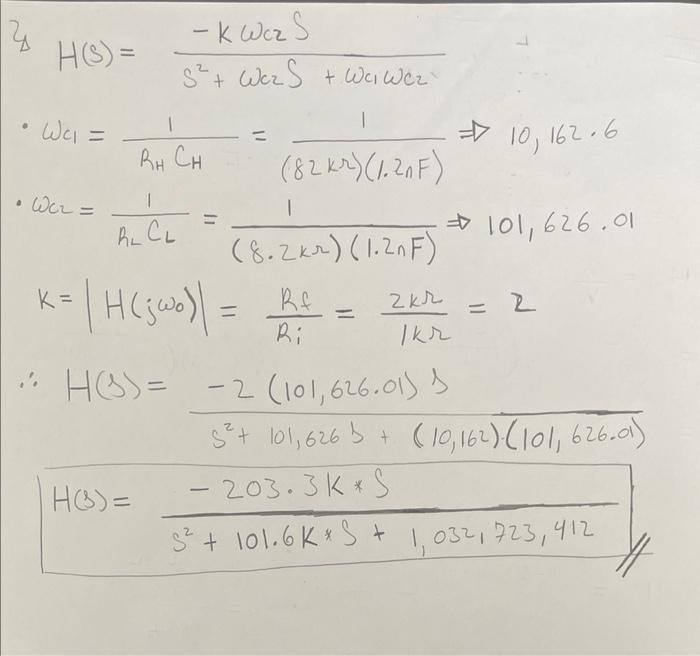 2) H(s) = -K ωc2 S / S² + ωc2 S + ωc1 ωc2
• ωc1 = 1 / RH CH = 1 / (82 kΩ)(1.2nF) ⇒ 10,162.6
• ωc2 = 1 / RL CL = 1 / (8.2kΩ)(1.2nF) ⇒ 101,626.01
K = |H(jω0)| = Rf / Ri = 2kΩ / 1kΩ = 2
∴ H(s) = -2 (101,626.01) s / S² + 101,626 s + (10,162)·(101,626.01)
H(s) = -203.3K * S / S² + 101.6K * S + 1,032,723,412 //